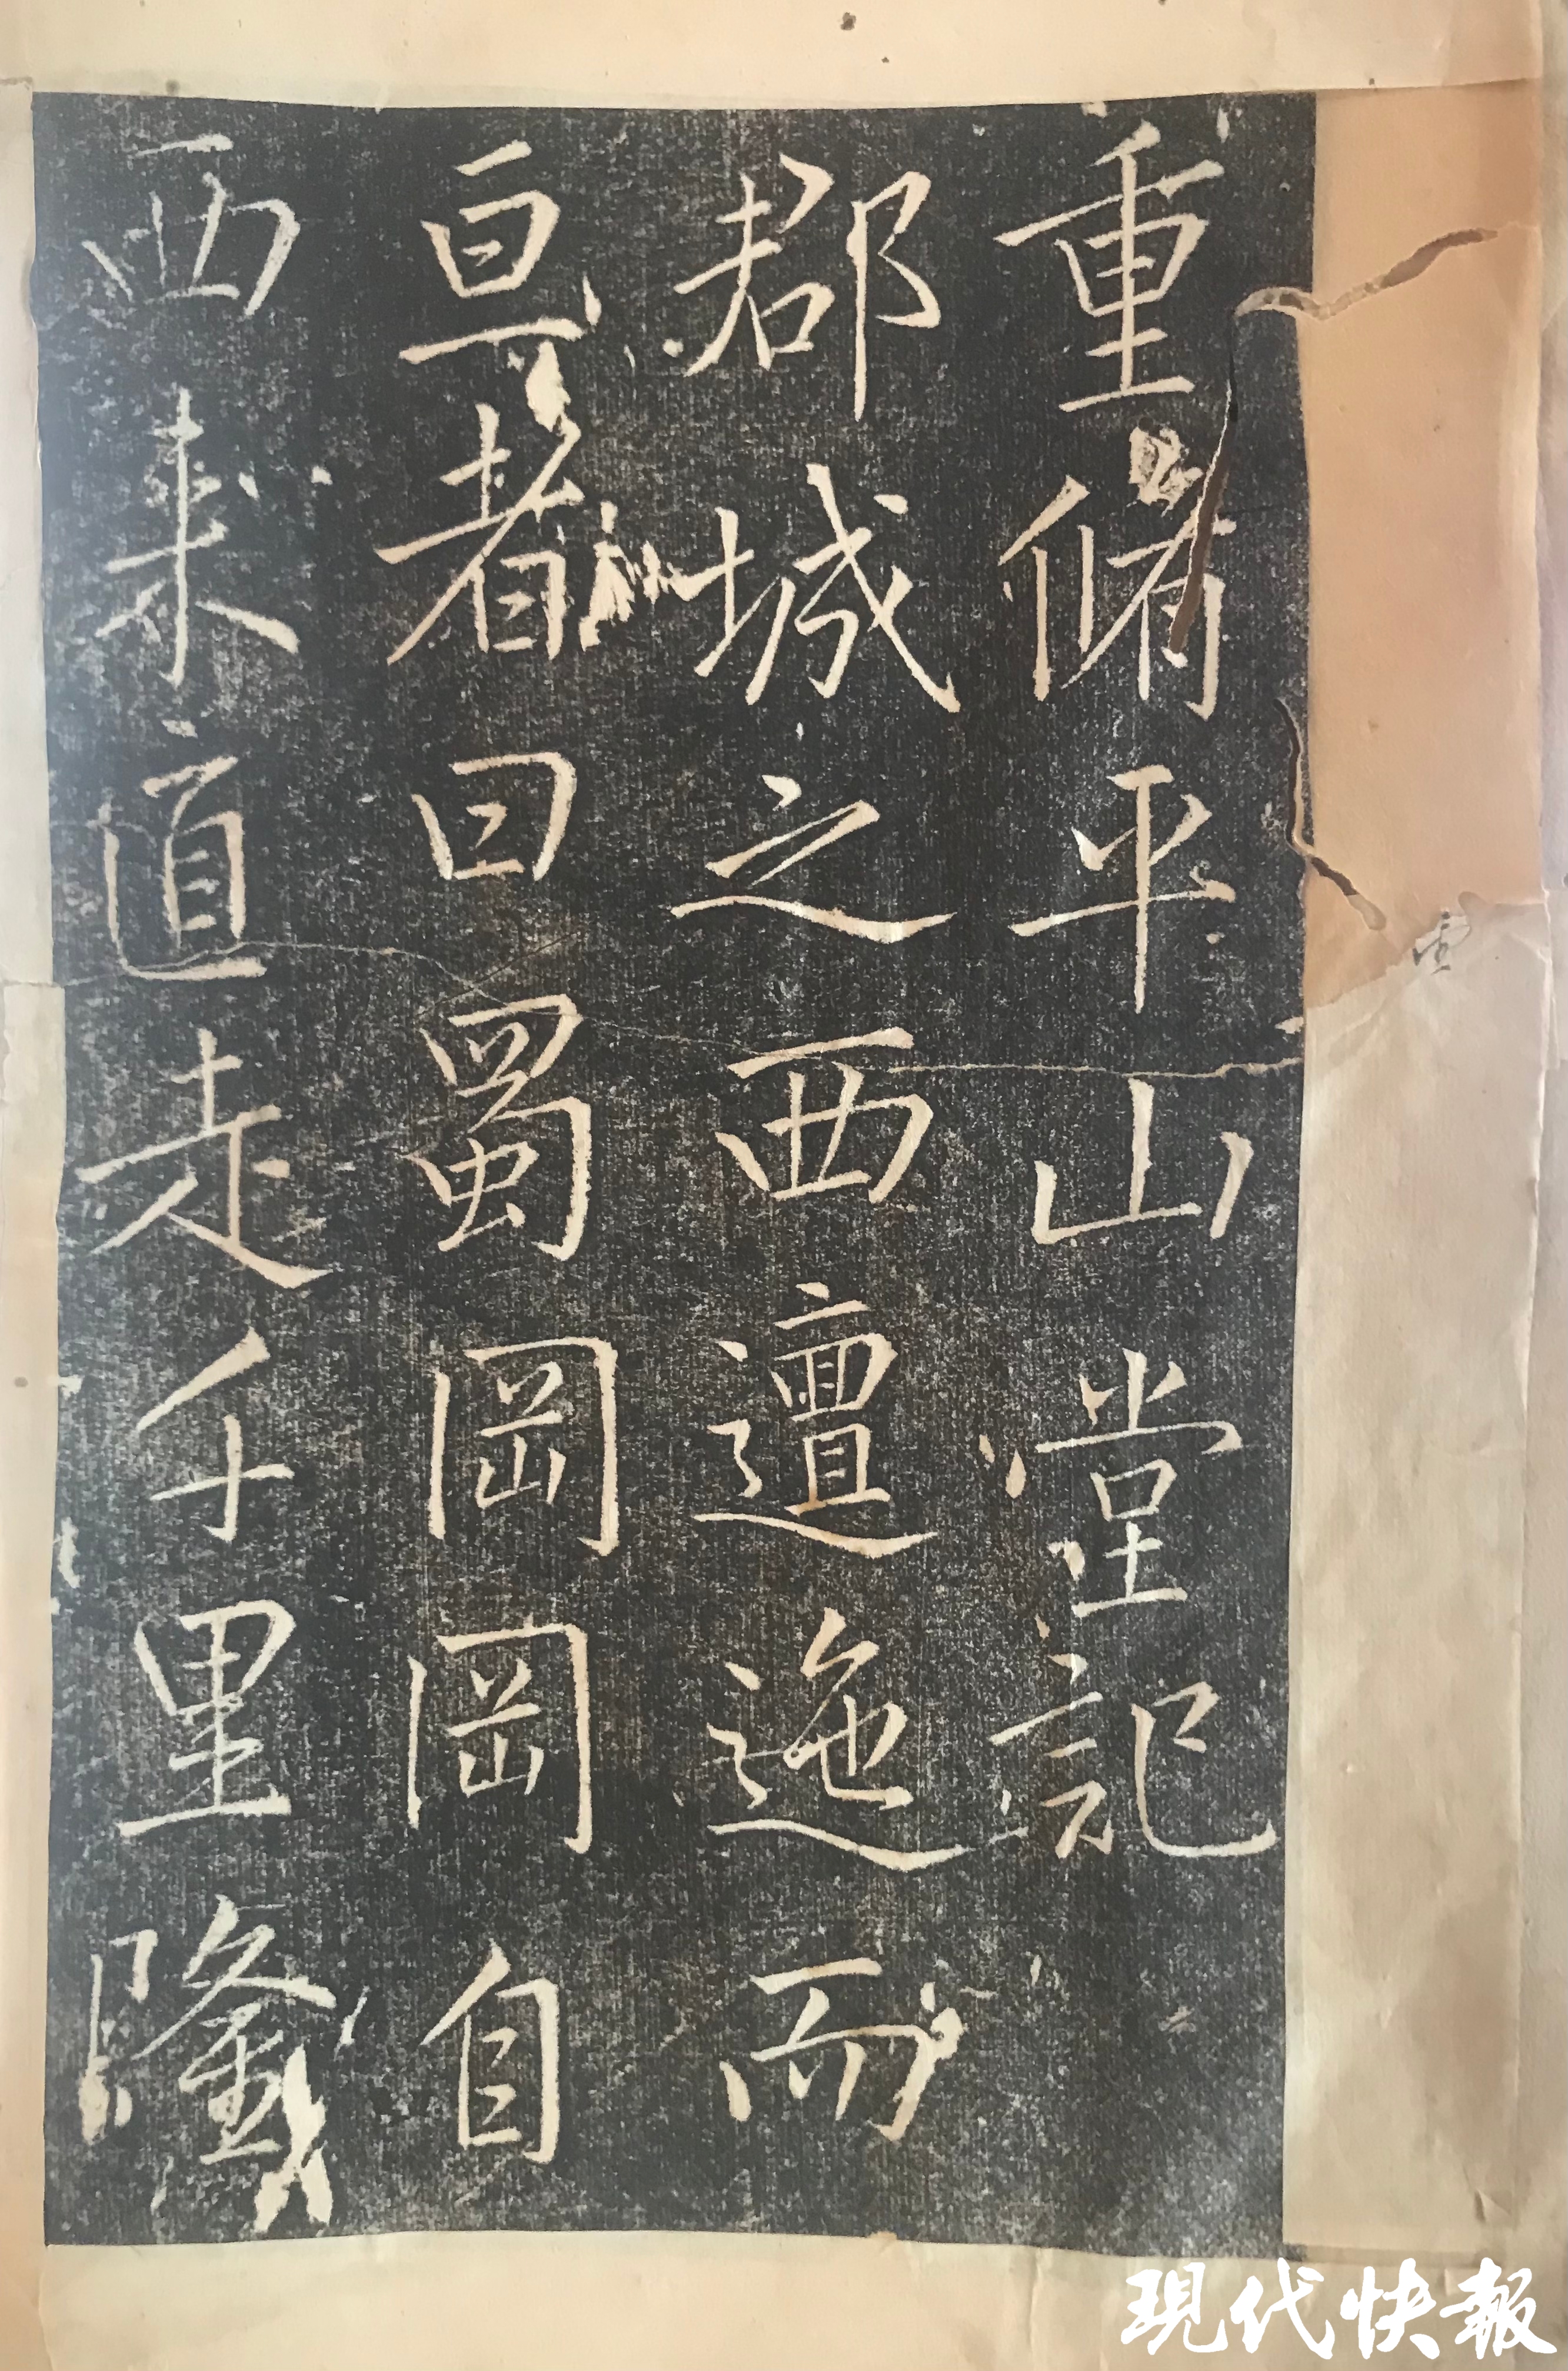 重脩平山堂記
郡城之西邅迤而
亘者曰蜀岡岡自
西来道走千里隆
現代快報